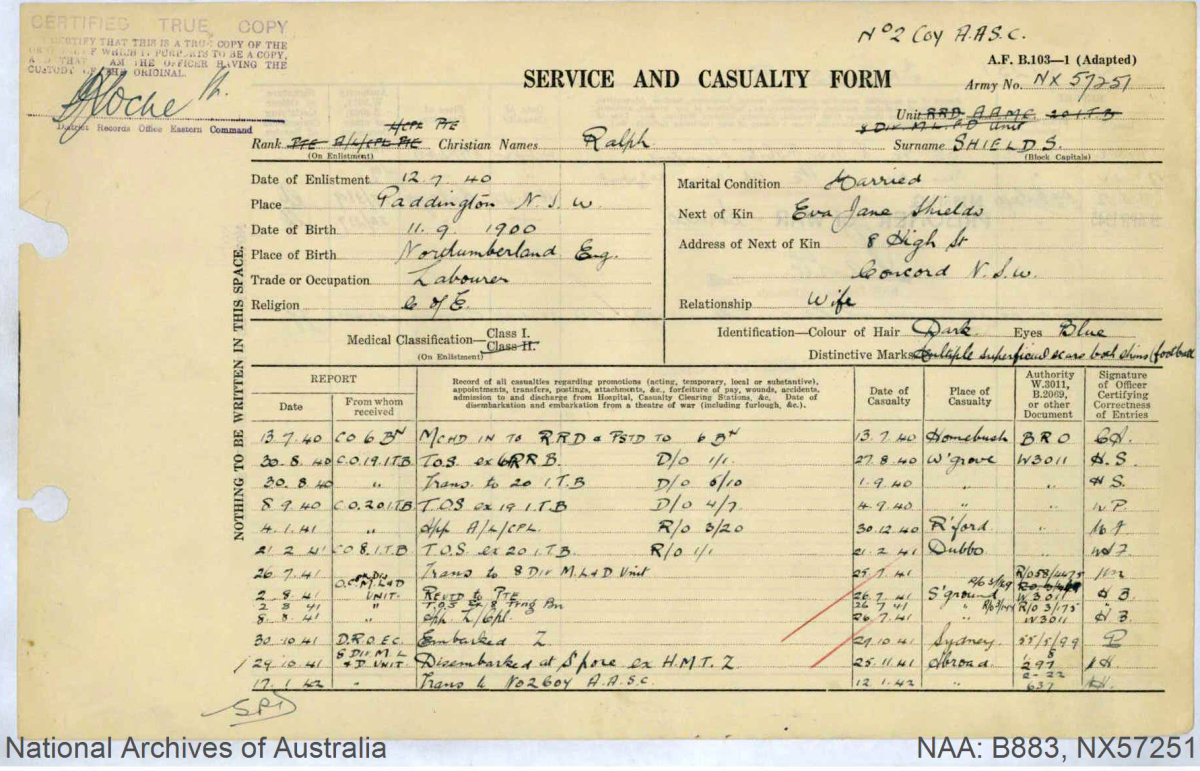 CERTIFIED TRUE COPY
I CERTIFY THAT THIS IS A TRUE COPY OF THE
OF WHICH IT PURPORTS TO BE A COPY,
AND THAT I AM THE OFFICER HAVING THE
CUSTODY OF THE ORIGINAL.
District Records Office Eastern Command
No 2 Coy A.A.S.C.
A.F. B.103—1 (Adapted)
SERVICE AND CASUALTY FORM
Army No. NX 57251
Unit RRD AAMC 20 I.T.B
8 DIV M.L. & D Unit
L/CPL PTE
Rank PTE A/L/CPL PTE Christian Names Ralph Surname SHIELDS.
(On Enlistment) (Block Capitals)
NOTHING TO BE WRITTEN IN THIS SPACE.
Date of Enlistment 12.7.40
Place Paddington N.S.W.
Date of Birth 11.9.1900
Place of Birth Northumberland Eng.
Trade or Occupation Labourer
Religion C of E.
Marital Condition Married
Next of Kin Eva Jane Shields
Address of Next of Kin 8 High St
Concord N.S.W.
Relationship Wife
Medical Classification—Class I.
Class II.
(On Enlistment)
Identification—Colour of Hair Dark. Eyes Blue
Distinctive Marks Multiple superficial scars both shins (football
REPORT
Date
From whom received
Record of all casualties regarding promotions (acting, temporary, local or substantive), appointments, transfers, postings, attachments, &c., forfeiture of pay, wounds, accidents, admission to and discharge from Hospital, Casualty Clearing Stations, &c. Date of disembarkation and embarkation from a theatre of war (including furlough, &c.).
Date of Casualty
Place of Casualty
Authority W.3011, B.2069, or other Document
Signature of Officer Certifying Correctness of Entries
13.7.40 CO 6 BN MCHD IN TO RRD & PSTD TO 6 BN 13.7.40 Homebush BRO
30.8.40 C.O.19.I.T.B T.O.S. ex 6 RRB. D/O 1/1. 27.8.40 W'grove W3011 H.S.
30.8.40 " Trans. to 20 I.T.B D/O 5/10 1.9.40 " " H S
8.9.40 C.O.20.I.T.B T.O.S ex 19 I.T.B D/O 4/7 4.9.40 " " W P.
4.1.41 " App A/L/CPL. R/O 3/20 30.12.40 R'ford. "
21.2.41 CO 8.I.T.B T.O.S. ex 20 I.T.B. R/O 1/1 21.2.41 Dubbo "
26.7.41 Trans to 8 Div M.L & D Unit 25.7.41 R/O 58/4475
2.8.41 O.C. 8 DIV M.L & D UNIT. Revtd to Pte 26.7.41 S'ground W3011 H B.
2 8 41 " T.O.S ex 8 Trng Bn 26 7 41 " R/O 3/175 "
8.8.41 " App L/Cpl. 26.7.41 W3011 H B.
30.10.41 D.R.O.E.C. Embarked Z 29.10.41 Sydney. 55/5/99
29.10.41 8 DIV M.L & D. UNIT Disembarked at S'pore ex H.M.T. Z 25.11.41 Abroad. 297
17.1.42 " Trans to No 2 Coy A.A.S.C. 12.1.42 " 637
National Archives of Australia
NAA: B883, NX57251